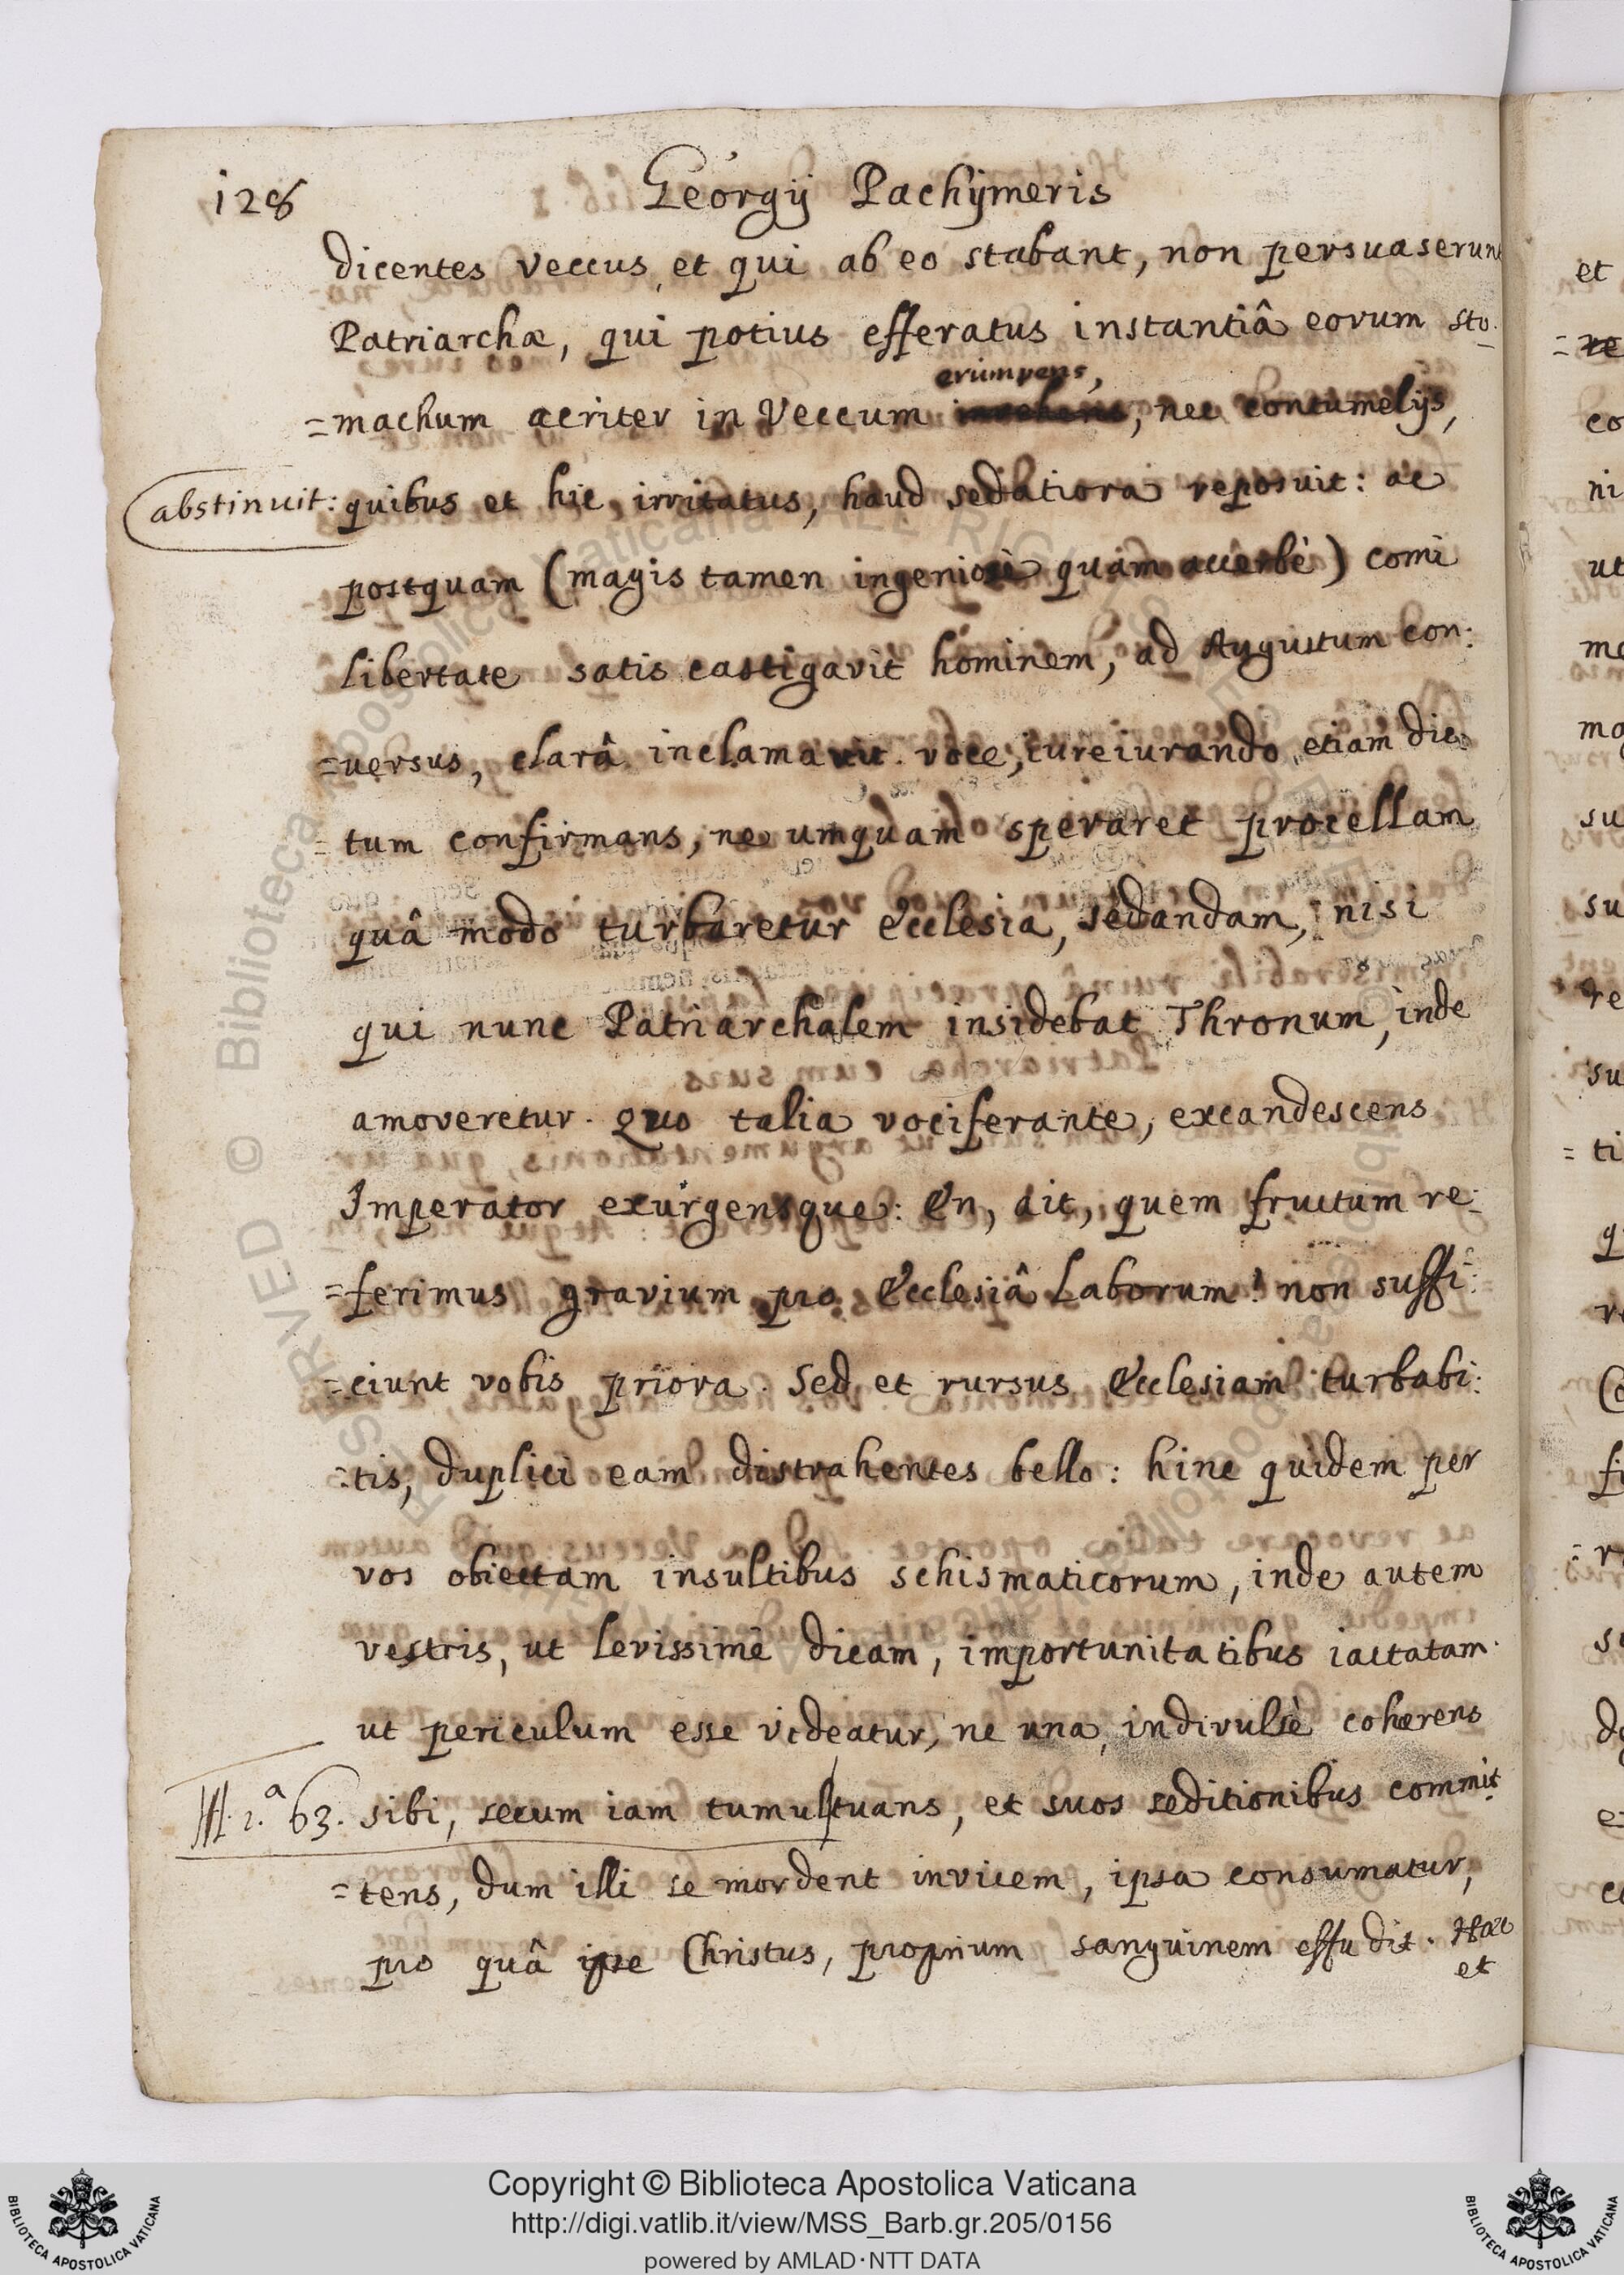 128 Georgij Pachijmeris
dicentes Veccus et qui ab eo stabant, non persuaserunt
Patriarchæ, qui potius efferatus instantiâ eorum sto-
erumpens,
=machum acriter in Veccum invehens, nec contumelijs,
abstinuit: quibus et hic irritatus, haud sedatiora reposuit: ac
postquam (magis tamen ingeniosè quàm accerbè) comi
libertate satis castigavit hominem, ad Augustum con:
=versus, clarâ inclamavit voce, iureiurando etiam dic:
=tum confirmans, ne umquam speraret procellam
quâ modo turbaretur Ecclesia, sedandam, nisi
qui nunc Patriarchalem insidebat Thronum, inde
amoveretur. Quo talia vociferante, excandescens
Imperator exurgensque: En, ait, quem fructum re-
=ferimus gravium pro Ecclesiâ Laborum! non suffi:
=ciunt vobis priora. Sed et rursus Ecclesiam turbabi:
=tis, duplici eam distrahentes bello: hinc quidem per
vos obiectam insultibus schismaticorum, inde autem
vestris, ut levissimè dicam, importunitatibus iactatam.
ut periculum esse videatur, ne una, indivulsè cohærens
sibi, secum iam tumultuans, et suos seditionibus commit
=tens, dum illi se mordent invicem, ipsa consumatur,
pro quâ ipse Christus, proprium sanguinem effudit. Hæc
et
Copyright © Biblioteca Apostolica Vaticana
http://digi.vatlib.it/view/MSS_Barb.gr.205/0156
powered by AMLAD·NTT DATA